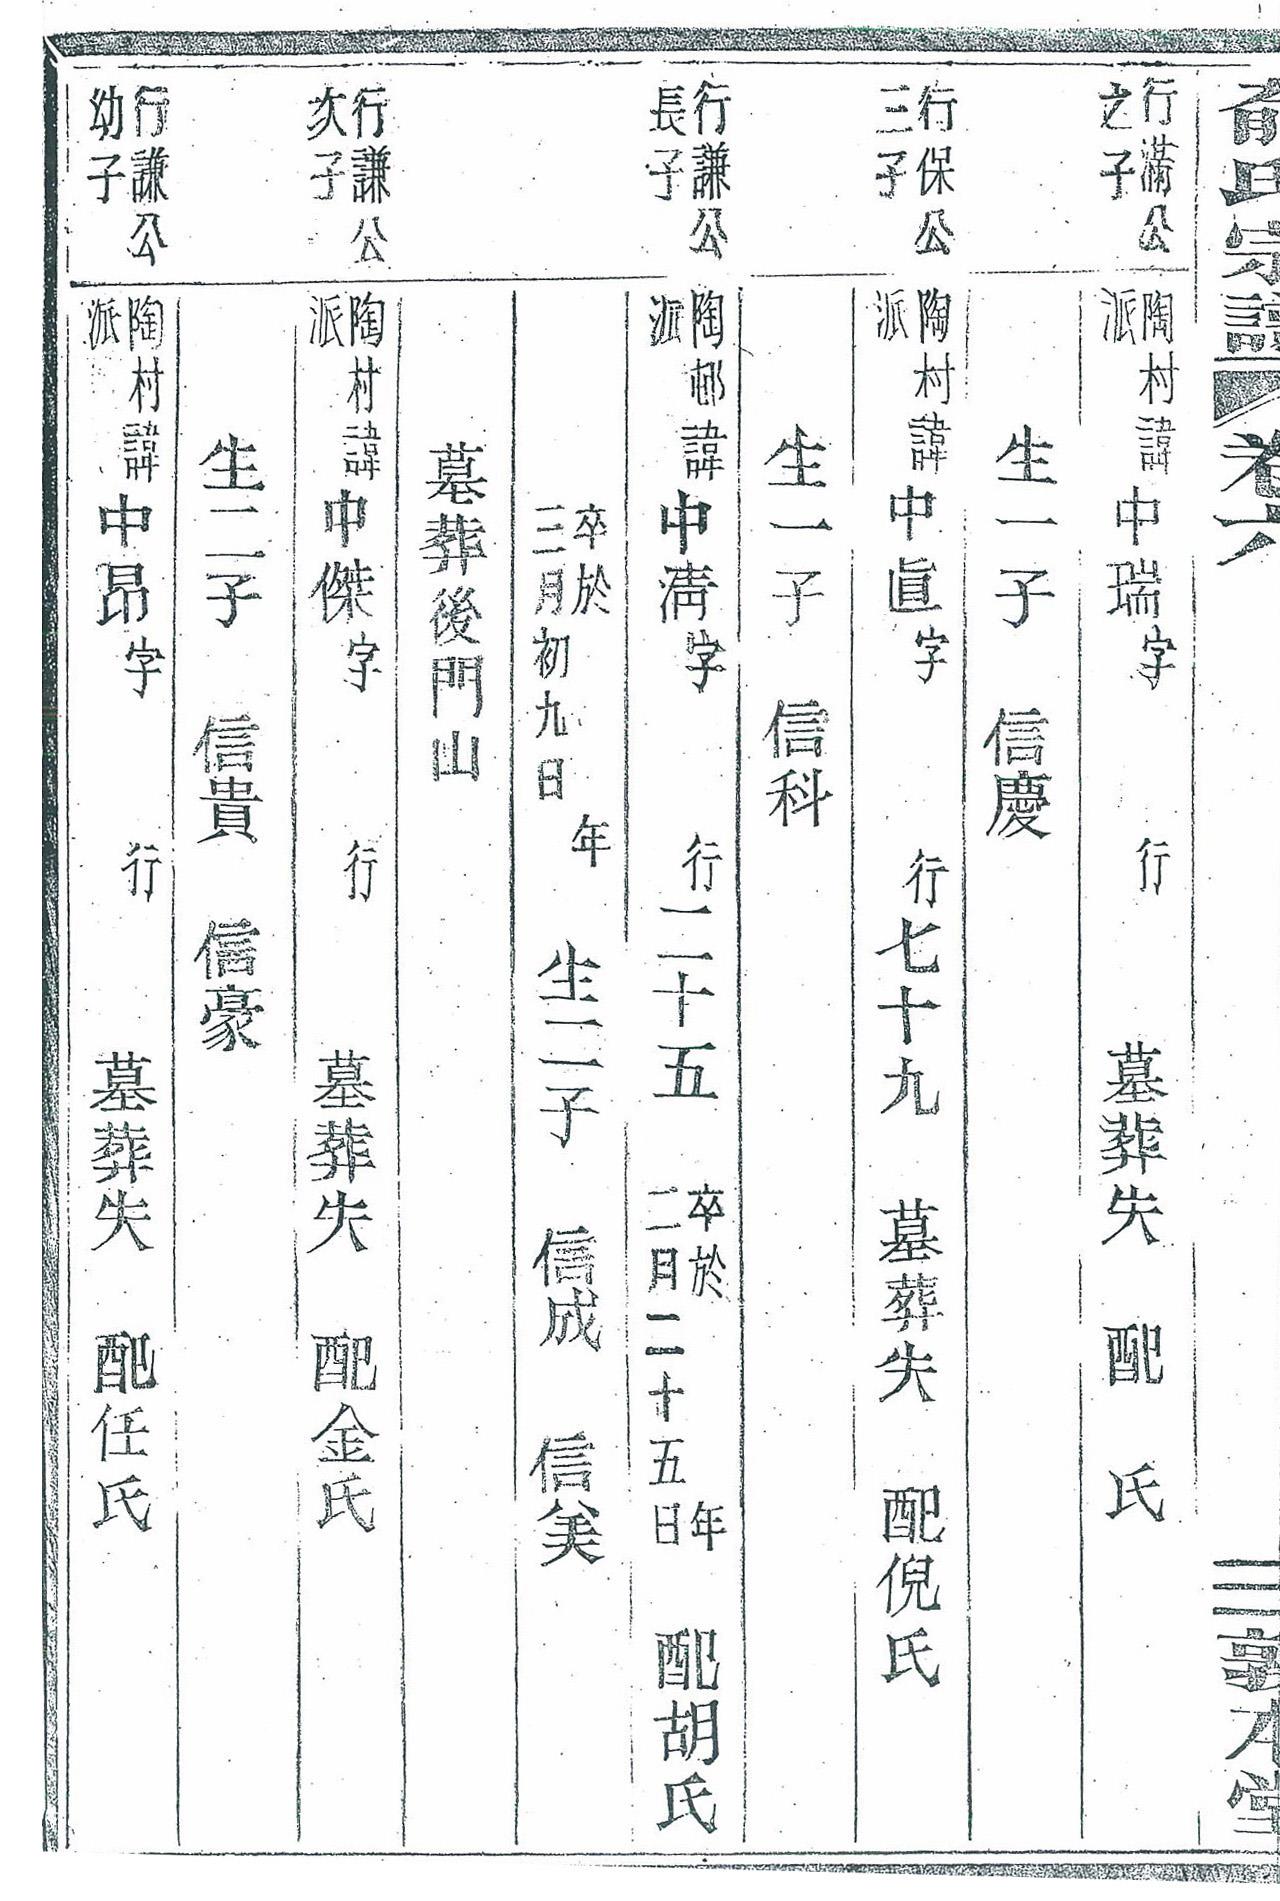 俞氏宗譜 卷六 三 敦本堂
行滿公
之子
陶村派諱中瑞字 行 墓葬失 配 氏
生一子 信慶
行保公
三子
陶村派諱中眞字 行七十九 墓葬失 配倪氏
生一子 信科
行謙公
長子
陶邨派諱中淸字 行一二十五 卒於 年二日二十五日 配胡氏
卒於 年三月初九日 生二子 信成 信美
墓葬後門山
行謙公
次子
陶村派諱中傑字 行 墓葬失 配金氏
生二子 信貴 信豪
行謙公
幼子
陶村派諱中昂字 行 墓葬失 配任氏